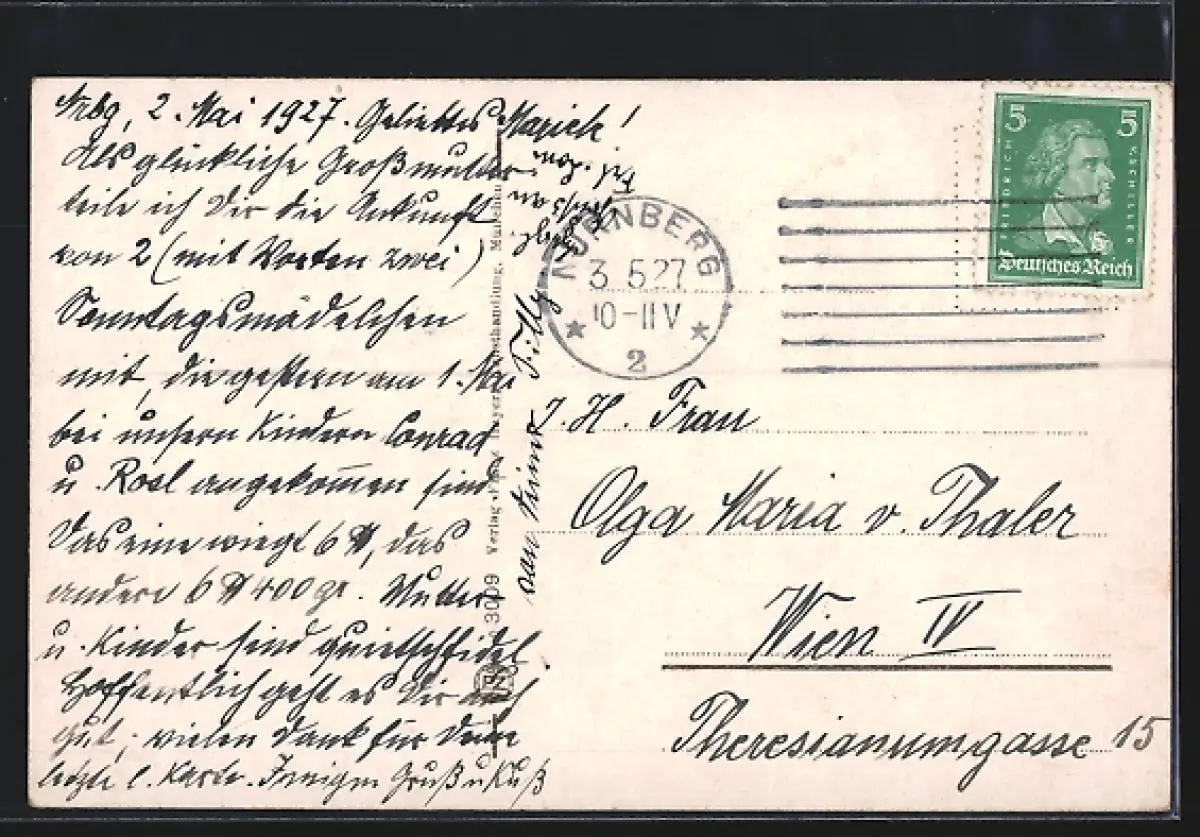 Nrbg, 2. Mai 1927. Geliebtes Mariele!
Als glückliche Großmutter
teile ich Dir die Ankunft
von 2 (mit Worten zwei)
Sonntagsmädelchen
mit, die gestern am 1. Mai
bei unsern Kindern Conrad
u. Rosl angekommen sind
Das eine wiegt 6 ℔, das
andere 6 ℔ 400 gr. Mutter
u. Kinder sind quietschfidel
Hoffentlich geht es Dir auch
gut, vielen Dank für Deine
letzte l. Karte. Innigen Gruß u. Kuß
von Deiner Tilly
Verlag München
3009
NÜRNBERG
3 5.27
10-11 V
2
5 5
FRIEDRICH V. SCHILLER
Deutsches Reich
I. H. Frau
Olga Maria v. Thaler
Wien IV
Theresianumgasse 15